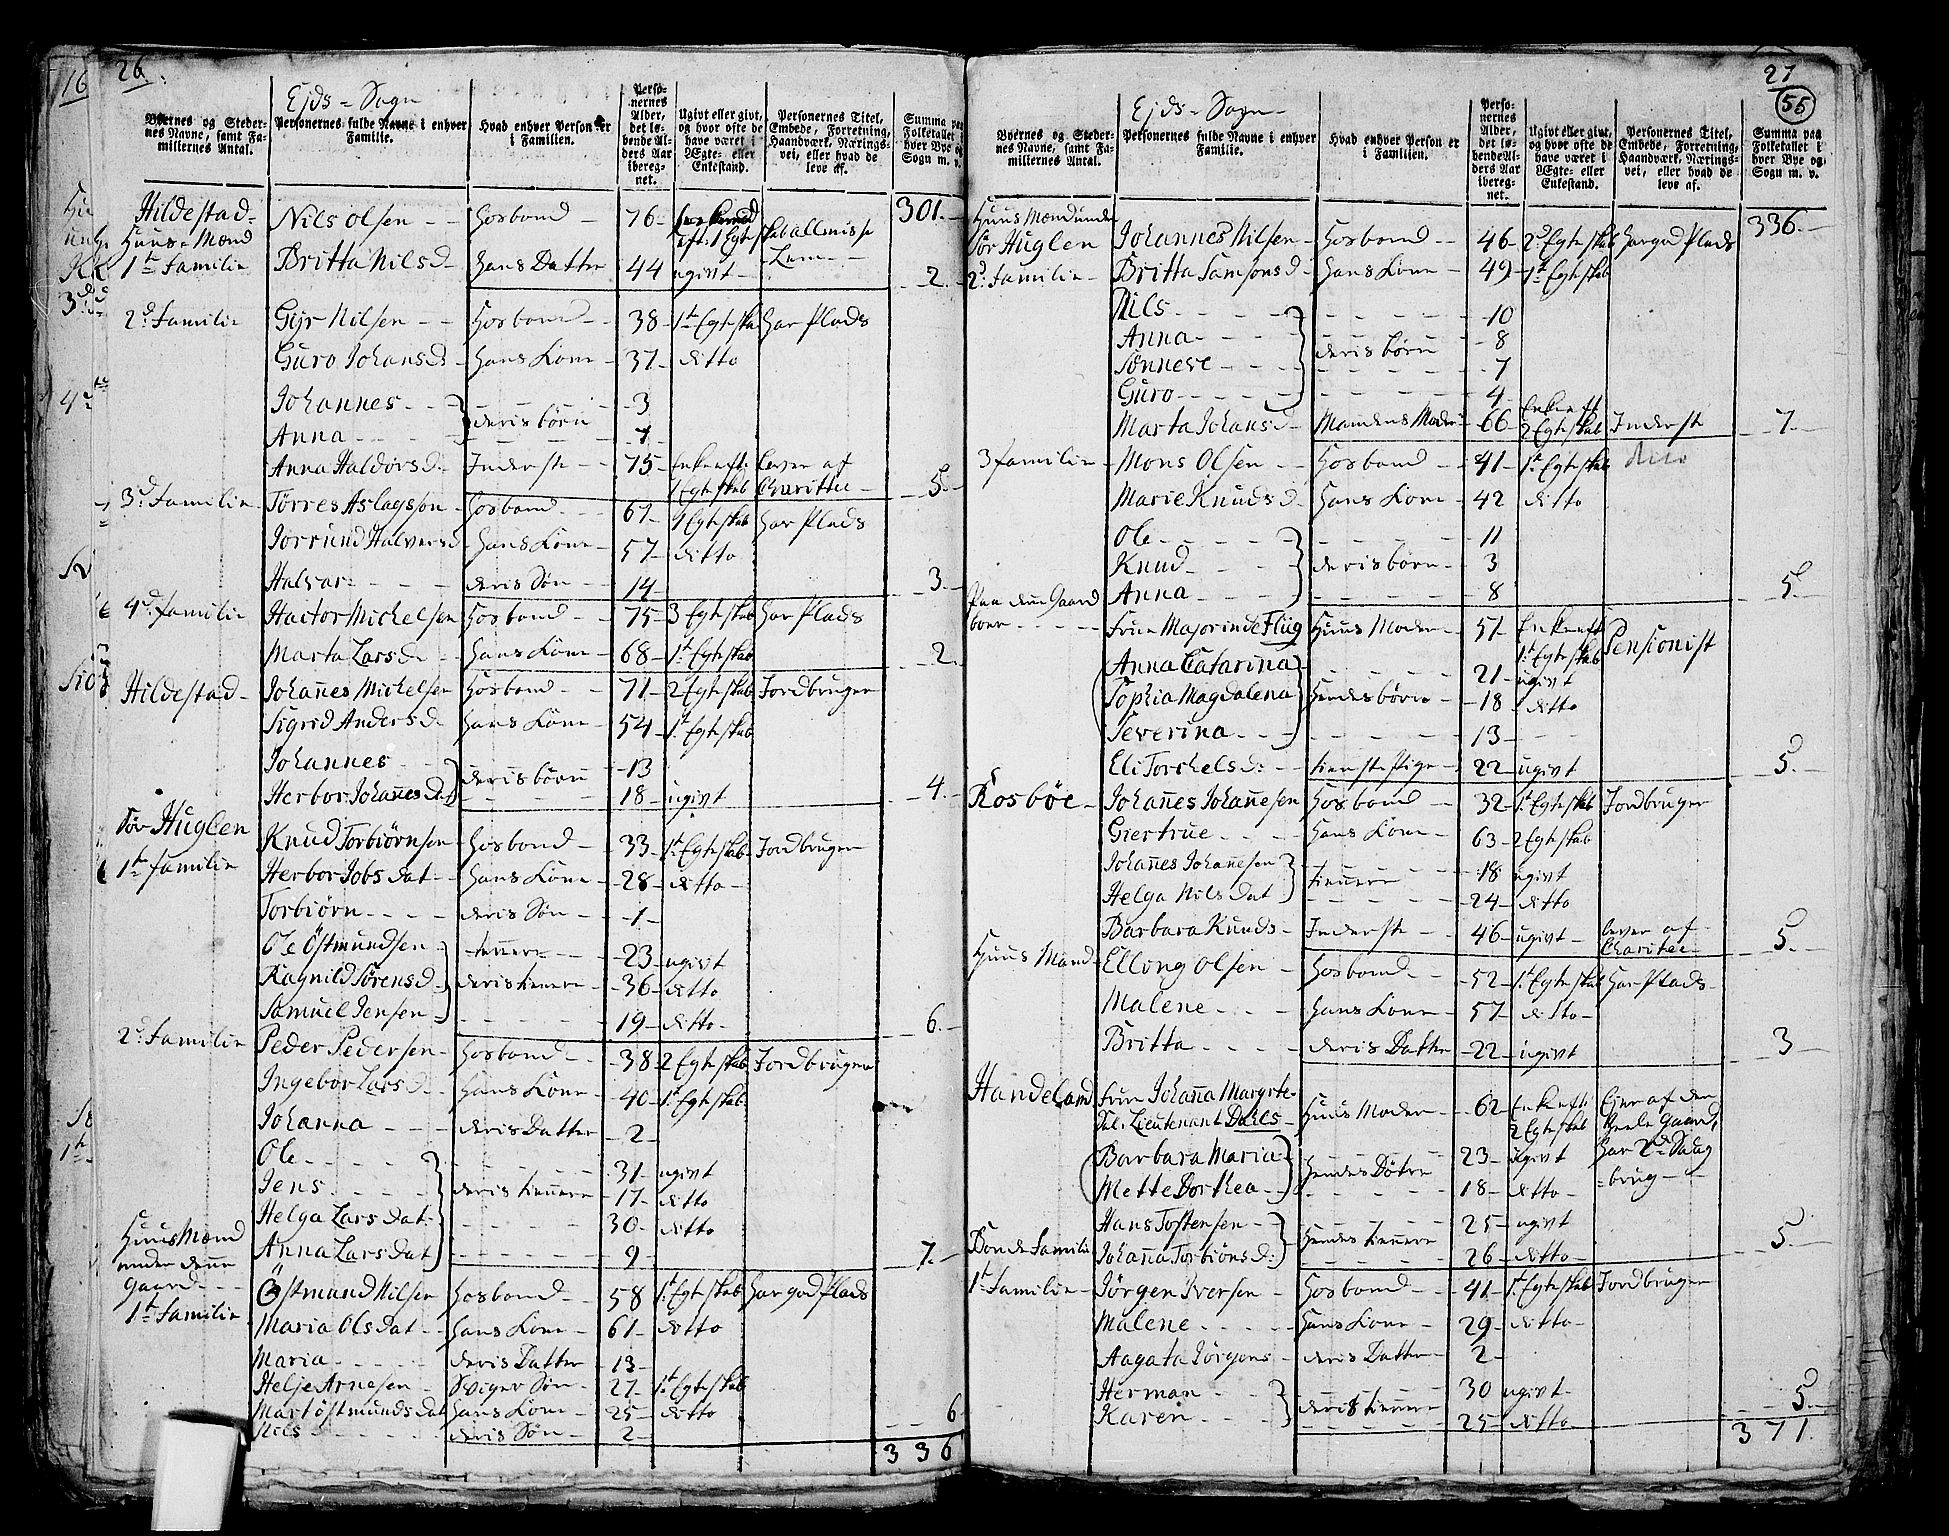 16
26.
Ejds = Sogn
Byernes og Steder-
nes Navne, samt Fa-
miliernes Antal.
Personernes fulde Navne i enhver
Familie.
Hvad enhver Person er
i Familien.
Perso-
nernes
Alder,
det lø-
bende Al-
ders Aar
iberegnet.
Ugivt eller givt,
og hvor ofte de
have været i
Ægte- eller
Enkestand.
Personernes Titel,
Embede, Forretning,
Haandværk, Nærings-
vei, eller hvad de
leve af.
Summa paa
Folketallet i
hver Bye og
Sogn m. v.
301.
Hildestad Nils Olsen Hosbond 76
eft. 1 Egteskab allmisse
Huus-Mænd
1te Familie Britta Nilsd. Hans Datter 44 ugivt Lem 2.
2d. Familie Gijr Nilsen Hosbond 38 1te Egteskab Har Plads
Guro Johansd. Hans Kone 37 ditto
Johannes deris børn 3
Anna 1
Anna Haldorsd. Inderste 75 Enke eft. 1 Egteskab lever af Charitee 5.
3d. Familie Tørres Aslagssøn Hosbond 67 1 Egteskab Har Plads
Jorrund Halversd. Hans Kone 57 ditto
Halvar deris Søn 14 3.
4d. Familie Hactor Michelsen Hosbond 75 3 Egteskab Har Plads
Marta Larsd. Hans Kone 68 1t. Egteskab 2.
Hildestad Johañes Michelsen Hosbond 71 2 Egteskab Jordbruger
Sigrid Andersd. Hans Kone 54 1t. Egteskab
Johannes deris børn 13
Herbor Johañesd. 18 ugivt 4.
Sør Huglen
1te Familie Knud Torbiörnsen Hosbond 33 1t. Egteskab Jordbruger
Herbor Jobsdat Hans Kone 28 ditto
Torbiörn deris Søn 1
Ole Östmundsen tiennere 23 ugivt
Ragnild Sörensd. deris tiennere 36 ditto
Samuel Jensen 19 ditto 6.
2d. Familie Peder Pedersen Hosbond 38 2 Egteskab Jordbruger
Ingebor Larsd. Hans Kone 40 1t. Egteskab
Johanna deris Datter 2
Ole 31 ugivt
Jens deris tiennere 17 ditto
Helga Larsdat 30 ditto
Anna Larsdat 9 7.
Huus Mænd
under denne
Gaard
1te Familie Östmund Nilsen Hosbond 58 1t. Egteskab Har god Plads
Maria Olsdat Hans Kone 61 ditto
Maria deris Datter 13
Helje Arnesen Sviger Søn 27 1t. Egteskab
Mart Östmundsdat Hans Kone 25 ditto
Nils deris Søn 2 6
336
27
55
Ejds = Sogn
Byernes og Steder-
nes Navne, samt Fa-
miliernes Antal.
Personernes fulde Navne i enhver
Familie.
Hvad enhver Person er
i Familien.
Perso-
nernes
Alder,
det lø-
bende Al-
ders Aar
iberegnet.
Ugivt eller givt,
og hvor ofte de
have været i
Ægte- eller
Enkestand.
Personernes Titel,
Embede, Forretning,
Haandværk, Nærings-
vei, eller hvad de
leve af.
Summa paa
Folketallet i
hver Bye og
Sogn m. v.
336.
Huus Mænd under
Sør Huglen Johannes Nilsen Hosbond 46 2d. Egteskab Har god Plads
2d. Familie Britta Samsonsd. Hans Kone 49 1t. Egteskab
Nils 10
Anna 8
Sönneve deris børn 7
Guro 4
Marta Johansd. Mandens Moder 66 Enke eft. 2 Egteskab Inderste 7.
3 familie Mons Olsen Hosbond 41 1t. Egteskab ditto
Marie Knudsd. Hans Kone 42 ditto
Ole 11
Knud deris børn 3
Anna 8 5.
Paa denne Gaard
boer Frue Majorinde Flüg Huus Moder 51 Enke eft. 1t. Egteskab Pensionist
Anna Catarina 21 ugivt
Sophia Magdalena Hendes børn 18 ditto
Severina 13
Eli Torchelsd. tieneste Pige 22 ugivt 5.
Rosbøe Johañes Johañesen Hosbond 32 1t. Egteskab Jordbruger
Giertrue Hans Kone 63 2 Egteskab
Johañes Johañesen tiennere 18 ugivt
Helga Nilsdat 24 ditto
Barbara Knuds Inderste 46 ugivt lever af Charitee 5.
Huus Mand Ellong Olsen Hosbond 52 1t. Egteskab Har Plads
Malene Hans Kone 57 ditto
Britta deris Datter 22 ugivt 3
Handeland Frue Johanna Margrte
Sal. Lieutenant Dahls Huus Moder 62 Enke eft. 2 Egteskab Ejer af den heele Gaard,
Barbara Maria Hendes Døtre 23 ugivt Har 2de Saug
Mette Dorthea 18 ditto brug
Hans Tostensen Hendes tiennere 25 ugivt
Bonde Familie Johaña Torbiönsd. 26 ditto 5.
1t Familie Jörgen Iversen Hosbond 41 1t. Egteskab Jordbruger
Malene Hans Kone 29 ditto
Aagata Jörgens deris Datter 2
Herman deris tiennere 30 ugivt
Karen 25 ditto 5.
371.